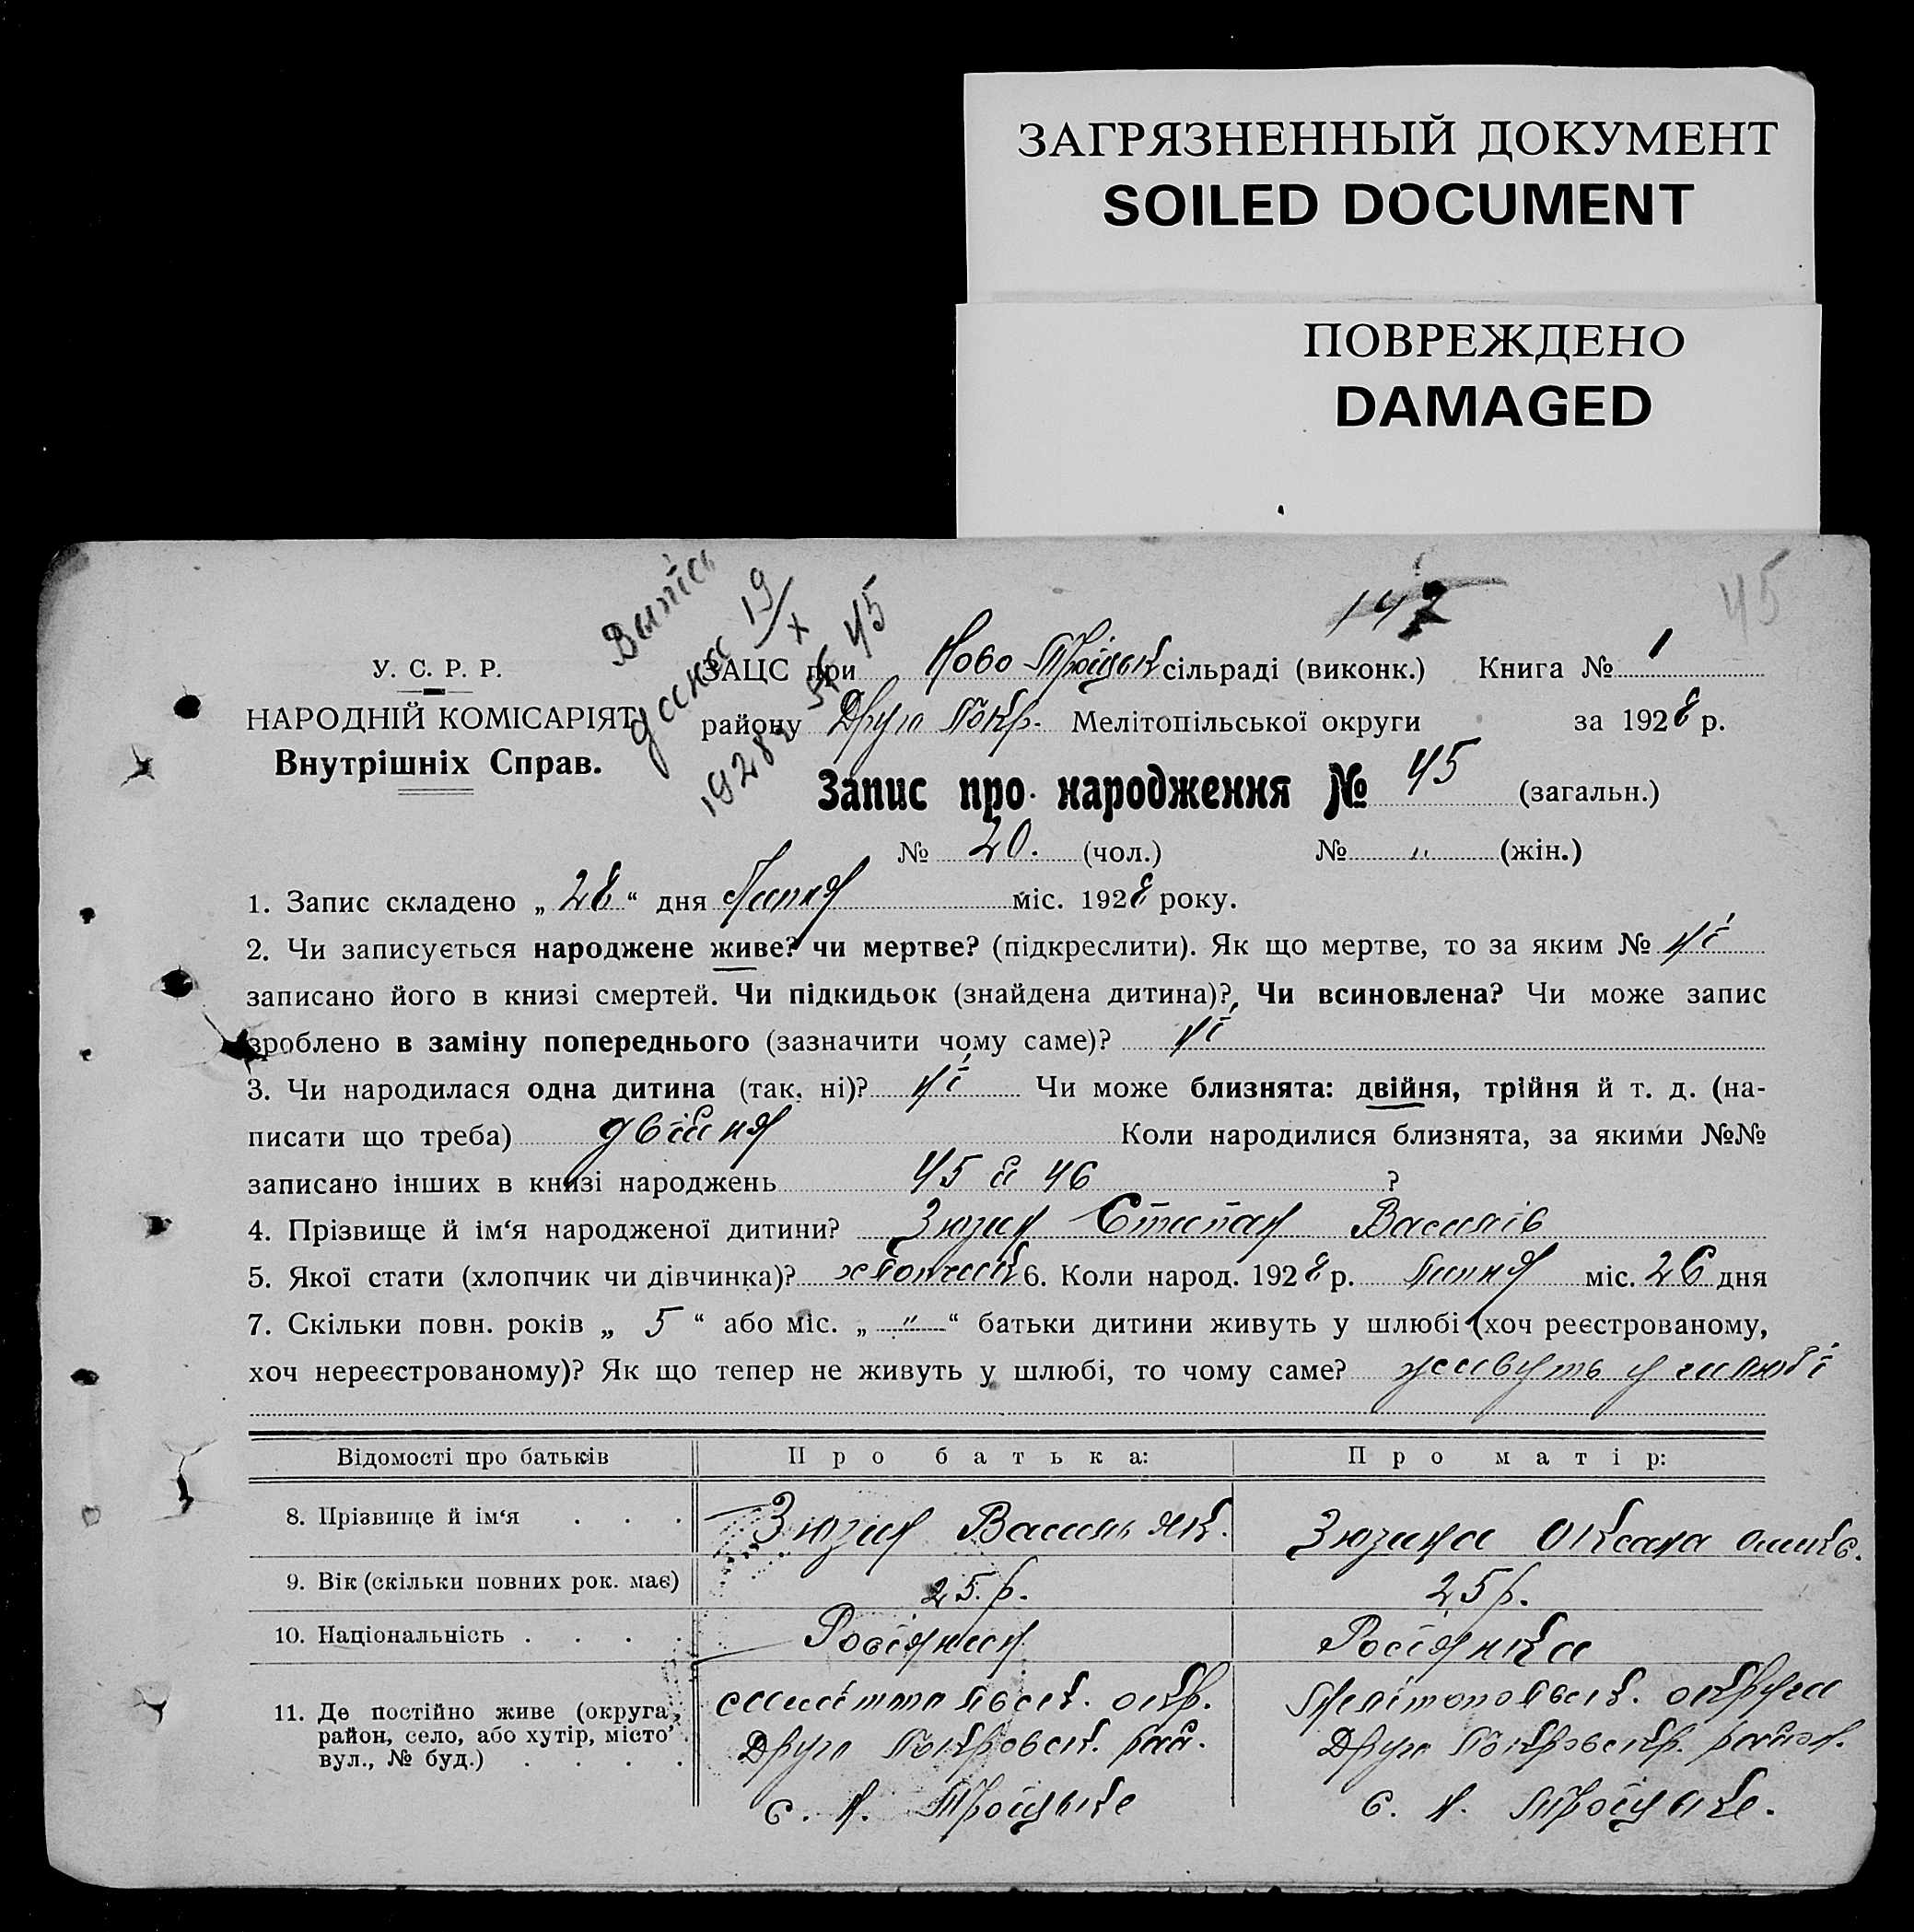 ЗАГРЯЗНЕННЫЙ ДОКУМЕНТ
SOILED DOCUMENT
ПОВРЕЖДЕНО
DAMAGED
45
147
Випись
дана 19/X
1928 р № 45
У. С. Р. Р.
НАРОДНІЙ КОМІСАРІЯТ
Внутрішніх Справ.
ЗАЦС при Ново Троїцьк сільраді (виконк.) Книга № 1
району Друго Покр. Мелітопільської округи за 1928 р.
Запис про народження № 45 (загальн.)
№ 20. (чол.) № " (жін.)
1. Запис складено „ 28 “ дня Липня міс. 1928 року.
2. Чи записується народжене живе? чи мертве? (підкреслити). Як що мертве, то за яким № ні
записано його в книзі смертей. Чи підкидьок (знайдена дитина)? Чи всиновлена? Чи може запис
зроблено в заміну попереднього (зазначити чому саме)? ні
3. Чи народилася одна дитина (так, ні)? ні Чи може близнята: двійня, трійня й т. д. (на-
писати що треба) двійня Коли народилися близнята, за якими №№
записано інших в книзі народжень 45 й 46 ?
4. Прізвище й ім‘я народженої дитини? Зюзин Степан Василів
5. Якої стати (хлопчик чи дівчинка)? хлопчик 6. Коли народ. 1928 р. липня міс. 26 дня
7. Скільки повн. років „ 5 “ або міс. „ " “ батьки дитини живуть у шлюбі (хоч реєстрованому,
хоч нереєстрованому)? Як що тепер не живуть у шлюбі, то чому саме? живуть у шлюбі
Відомості про батьків Про батька: Про матір:
8. Прізвище й ім‘я . . . Зюзин Василь Як. Зюзина Оксана
9. Вік (скільки повних рок. має) 25 р. 25 р.
10. Національність . . . . Росіянин Росіянка
11. Де постійно живе (округа, район, село, або хутір, місто вул., № буд.) . . . .
Мелітопольск. окр. Мелітопольск. округи
Друго Покровск. рай. Друго Покровскр. район.
с. Н. Троїцьке с. Н. Троїцьке.